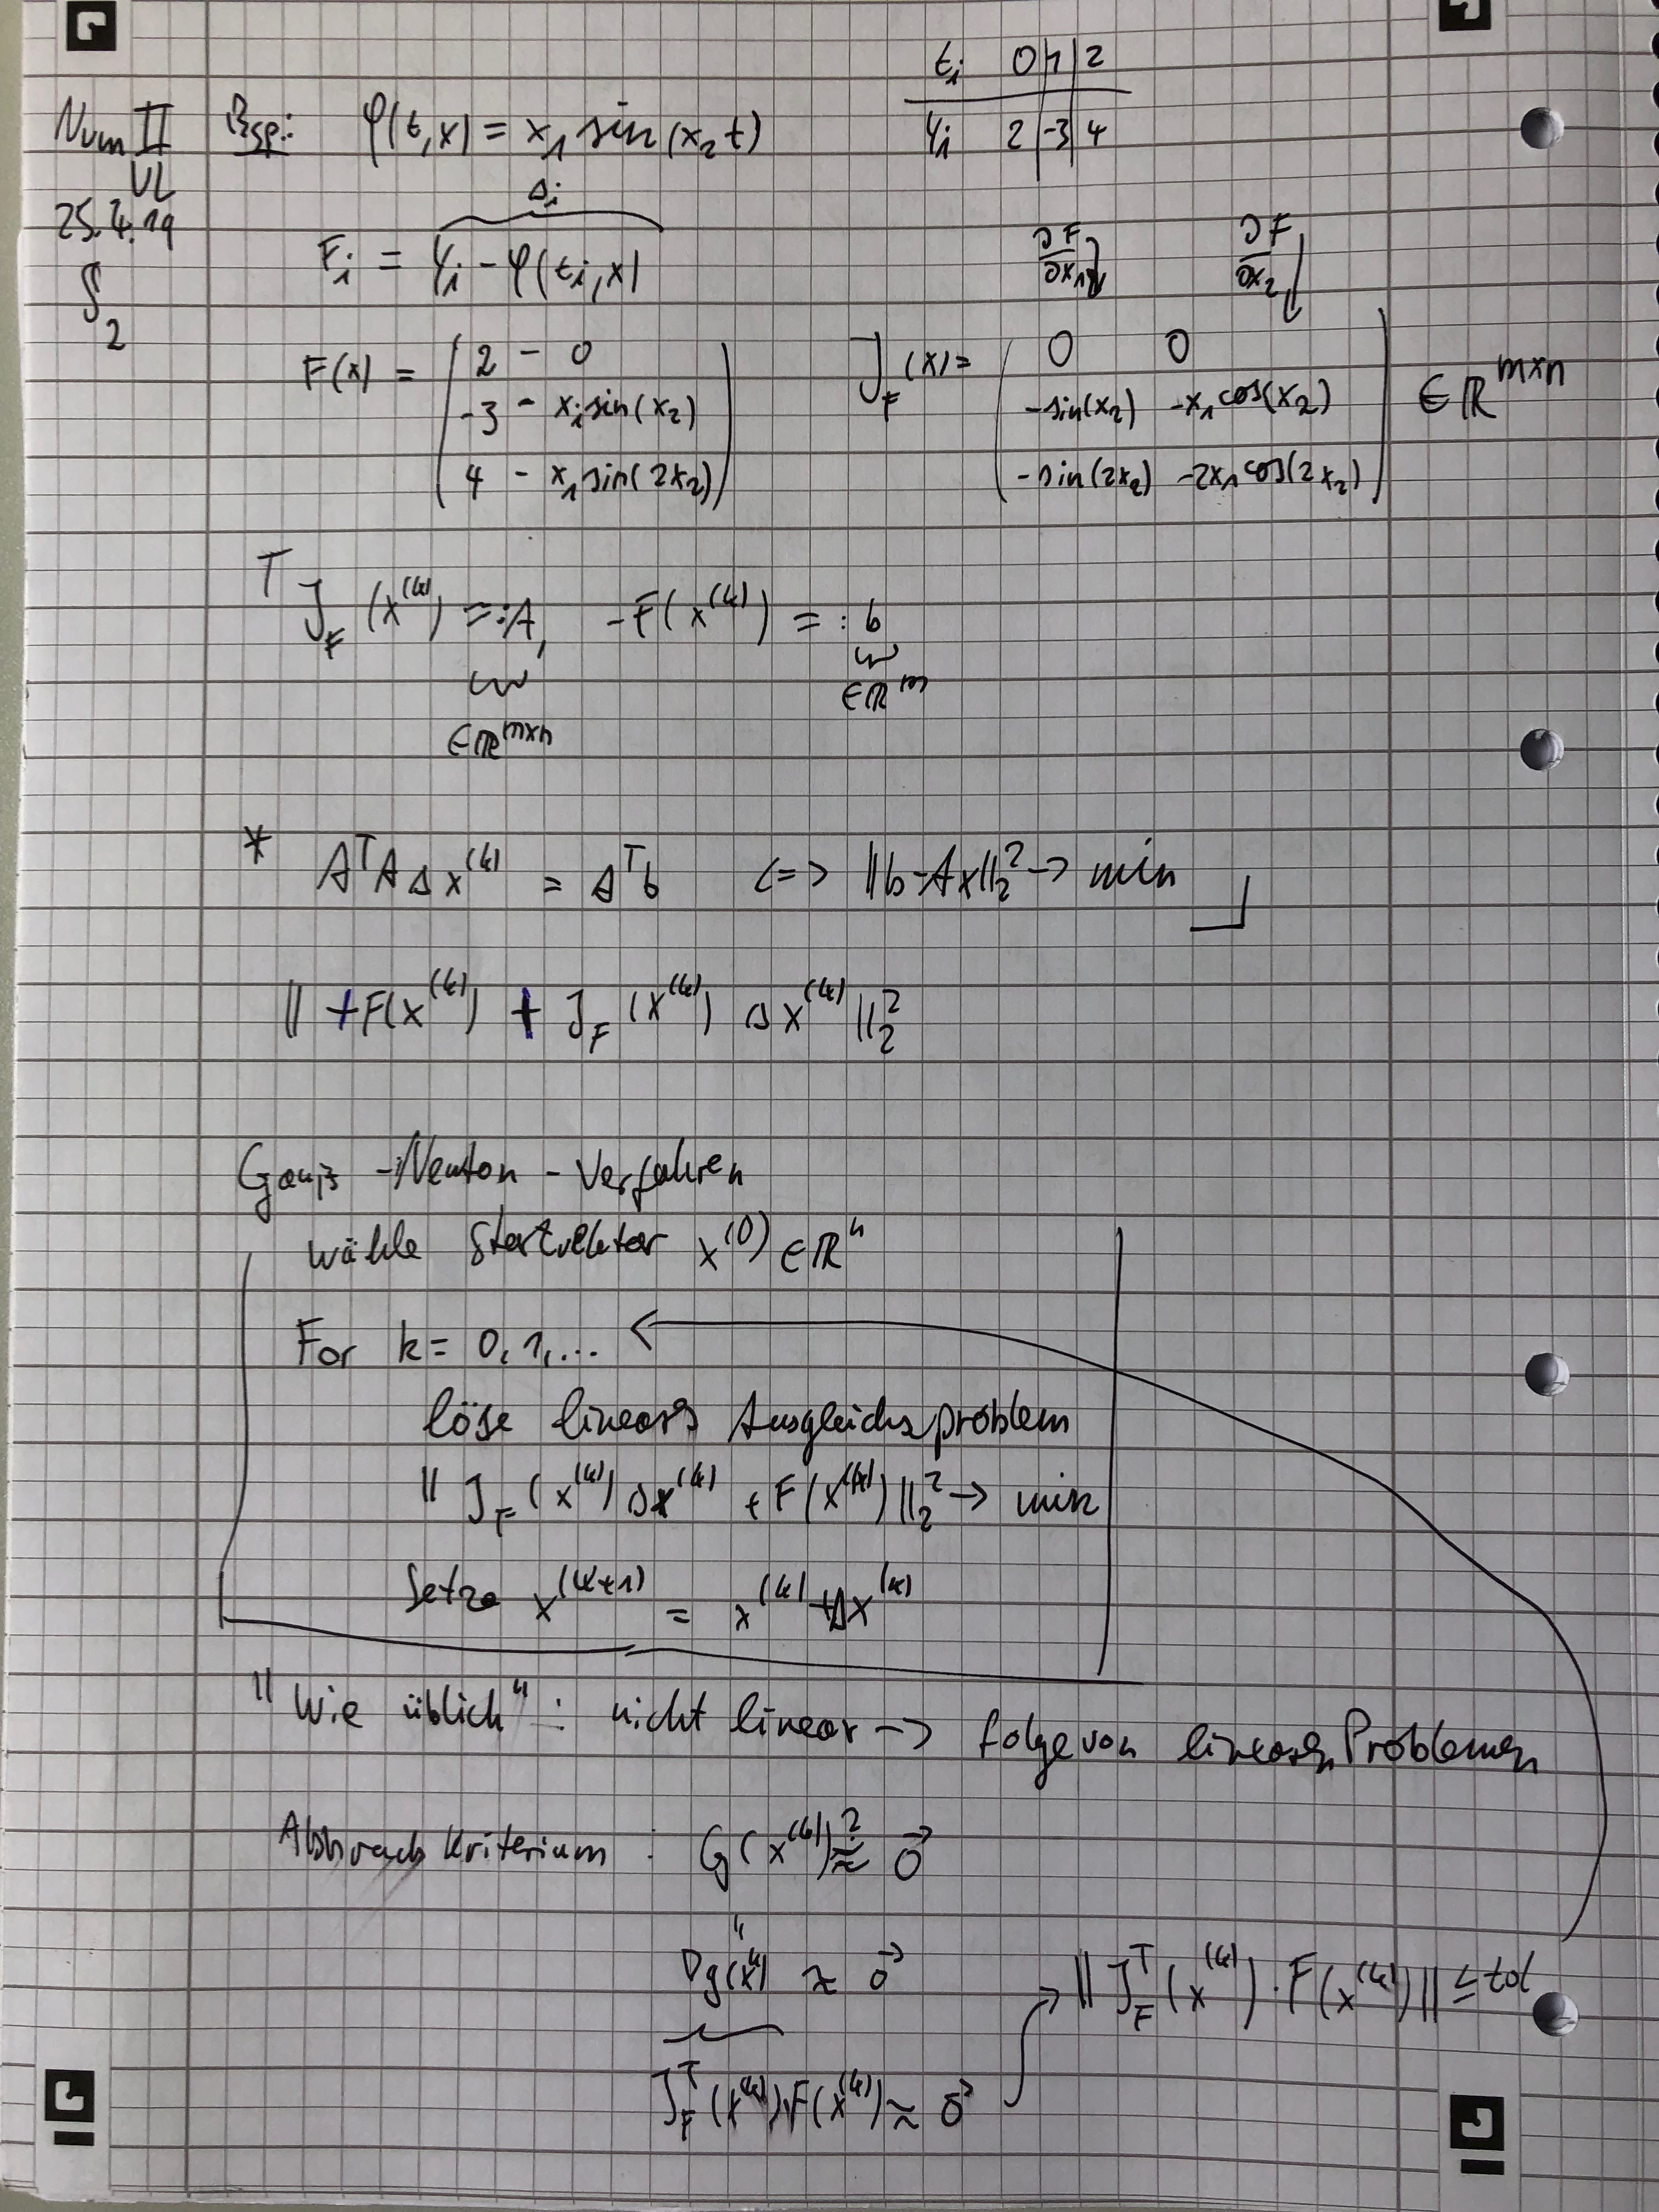 Num II
VL
25.4.19
S2
Bsp.: φ(t,x) = x₁ sin(x₂t)
tᵢ 0 | 1 | 2
yᵢ 2 | -3 | 4
Δᵢ
Fᵢ = yᵢ - φ(tᵢ,x)
∂F/∂x₁ ∂F/∂x₂
F(x) = ( 2 - 0
-3 - xᵢ sin(x₂)
4 - x₁ sin(2x₂) )
J_F(x) = ( 0 0
-sin(x₂) -x₁ cos(x₂)
-sin(2x₂) -2x₁ cos(2x₂) ) ∈ ℝ^{m×n}
⌈ J_F(x^{(k)}) =: A, -F(x^{(k)}) =: b
∈ℝ^{m×n} ∈ℝ^m
* AᵀA Δx^{(k)} = Aᵀb <=> ||b-Ax||₂² → min ⌋
|| +F(x^{(k)}) + J_F(x^{(k)}) Δx^{(k)} ||₂²
Gauß-Newton-Verfahren
wähle Startvektor x^{(0)} ∈ ℝ^n
For k = 0,1,...
löse lineares Ausgleichsproblem
|| J_F(x^{(k)}) Δx^{(k)} + F(x^{(k)}) ||₂² → min
Setze x^{(k+1)} = x^{(k)} + Δx^{(k)}
"Wie üblich": nicht linear → Folge von linearen Problemen
Abbruch Kriterium : G(x^{(k)}) ≈? 0⃗
"
∇g(x^k) ≈ 0⃗
J_Fᵀ(x^{(k)}) F(x^{(k)}) ≈ 0⃗
|| J_Fᵀ(x^{(k)}) · F(x^{(k)}) || ≤ tol